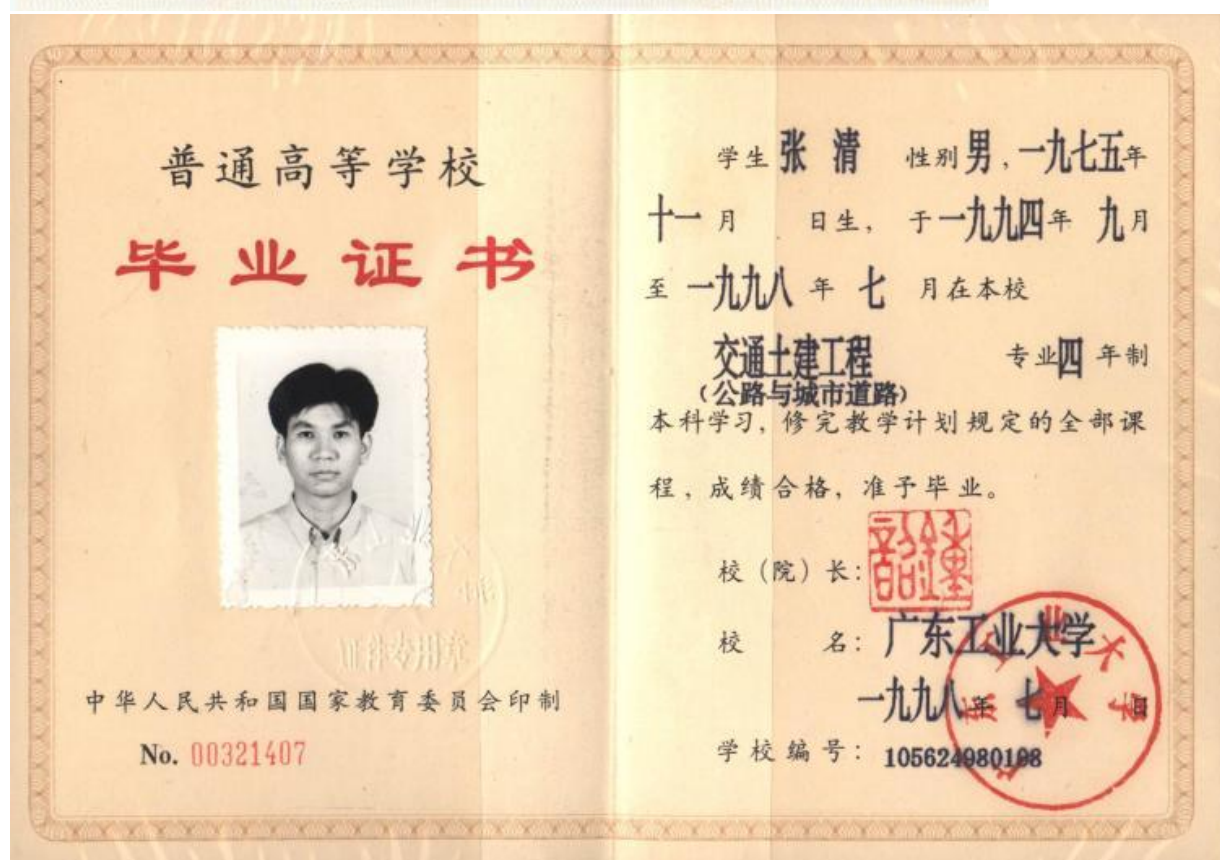 普通高等学校
毕业证书
中华人民共和国国家教育委员会印制
No. 00321407
学生 张清 性别 男，一九七五年
十一月 日生，于一九九四年 九月
至 一九九八 年 七 月在本校
交通土建工程 专业四 年制
（公路与城市道路）
本科学习，修完教学计划规定的全部课
程，成绩合格，准予毕业。
校（院）长：
校 名：广东工业大学
一九九八年 七月 日
学校编号：105624980198
广东工业大学